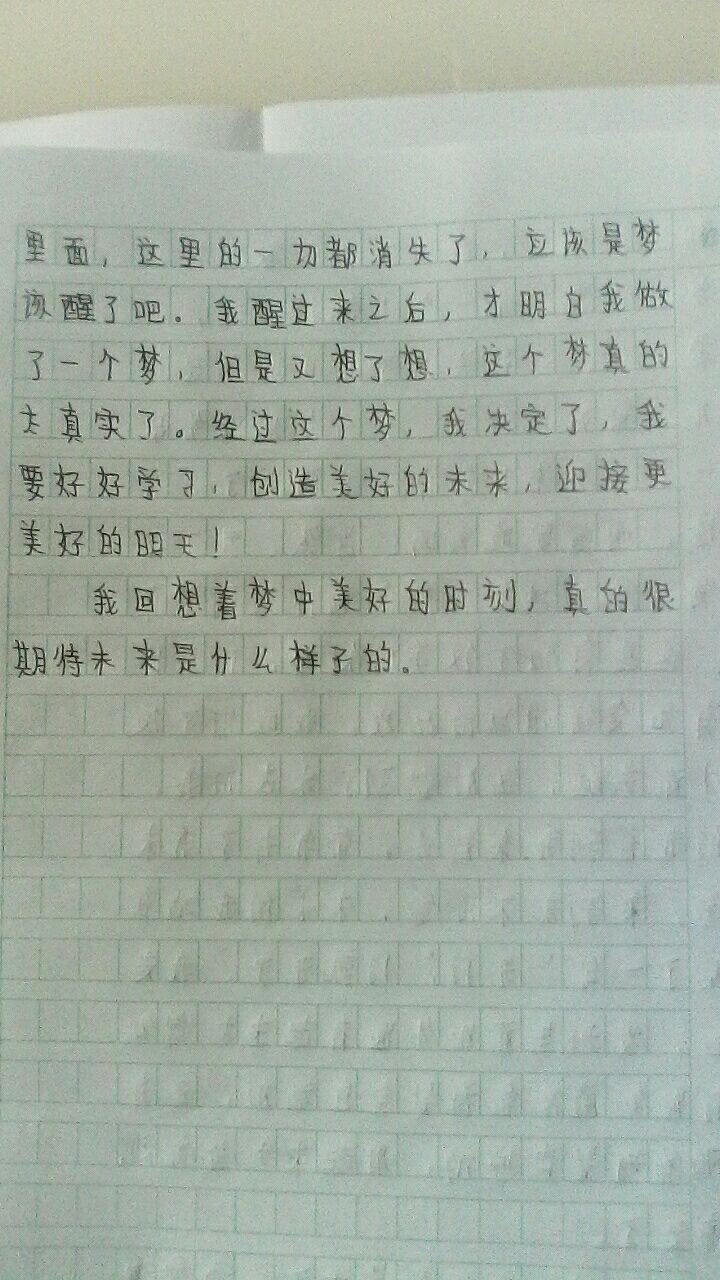 里面，这里的一切都消失了，应该是梦
该醒了吧。我醒过来之后，才明白我做
了一个梦，但是又想了想，这个梦真的
太真实了。经过这个梦，我决定了，我
要好好学习，创造美好的未来，迎接更
美好的明天！
我回想着梦中美好的时刻，真的很
期待未来是什么样子的。